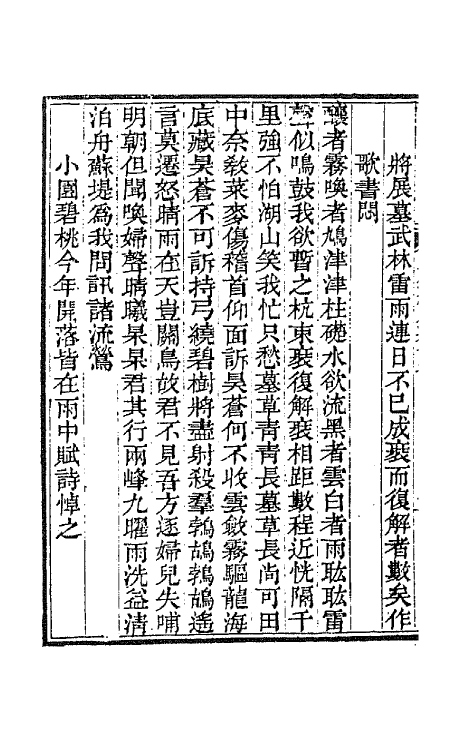 將展墓武林雷雨連日不已成裝而復解者數矣作
歌書悶
釀者霧喚者鳩津津柱礎水欲流黑者雲白者雨耾耾雷
聲似鳴鼓我欲暫之杭束裝復解裝相距數程近恍隔千
里強不怕湖山笑我忙只愁墓草青青長墓草長尚可田
中奈敎菜麥傷稽首仰面訴昊蒼何不收雲斂霧驅龍海
底藏昊蒼不可訴持弓繞碧樹將盡射殺羣鵓鴣鵓鴣遙
言莫遷怒晴雨在天豈關鳥故君不見吾方逐婦兒失哺
明朝但聞喚婦聲晴曦杲杲君其行兩峰九曜雨洗益清
泊舟蘇堤爲我問訊諸流鶯
小園碧桃今年開落皆在雨中賦詩悼之